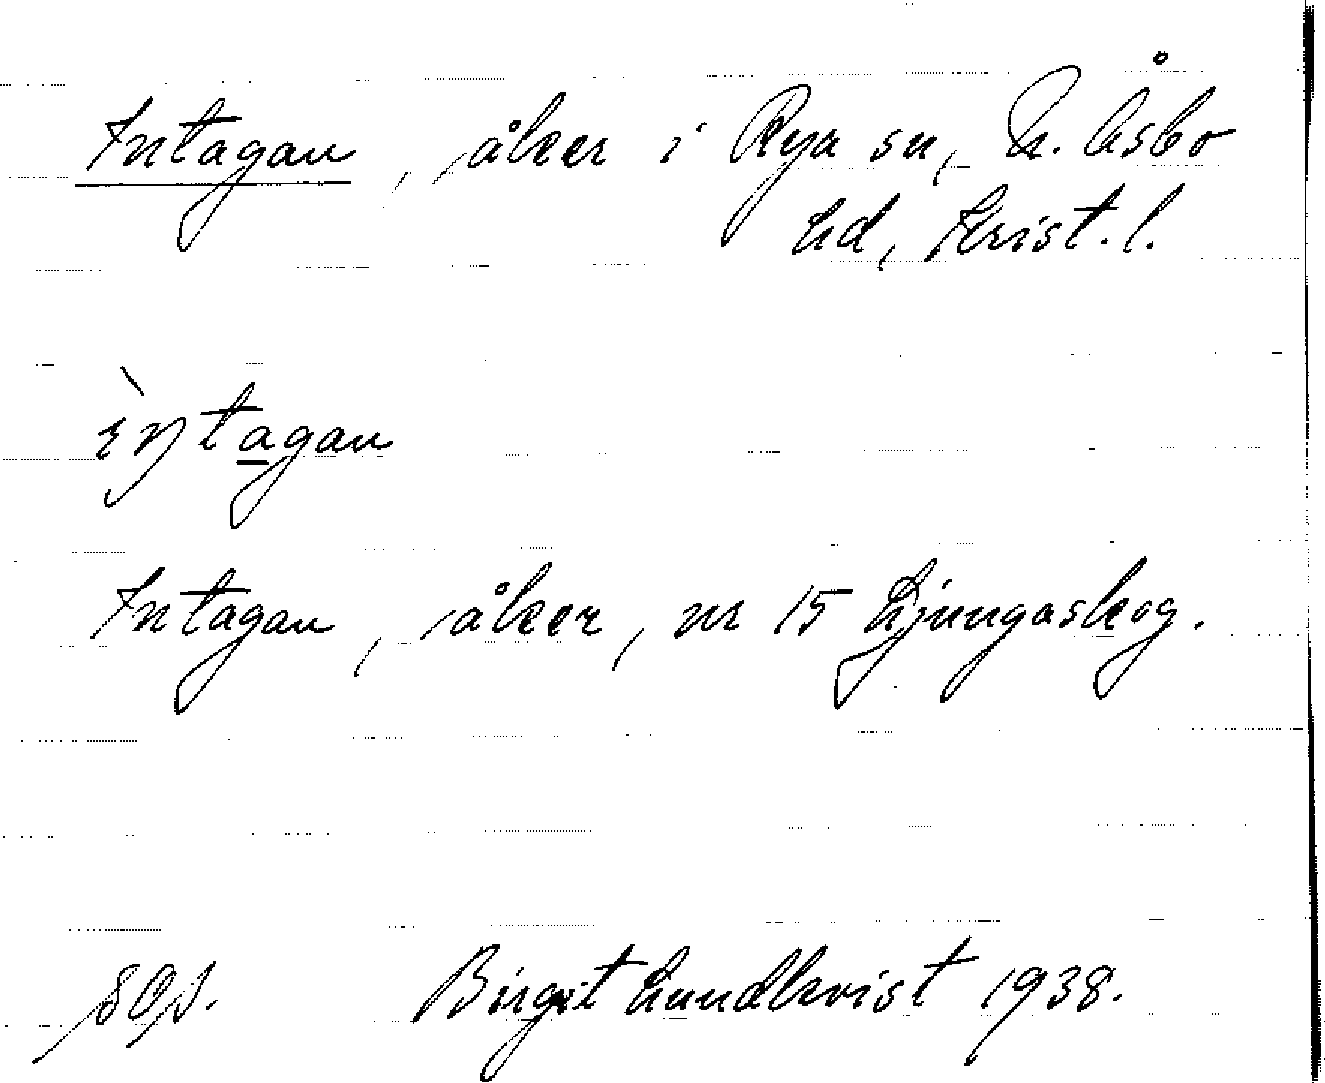 Intagan, åker i Rya sn, N. Åsbo
hd, Krist. l.
ìntagan
Intagan, åker, nr 15 Ljungaskog.
Birgit Lundkvist 1938.